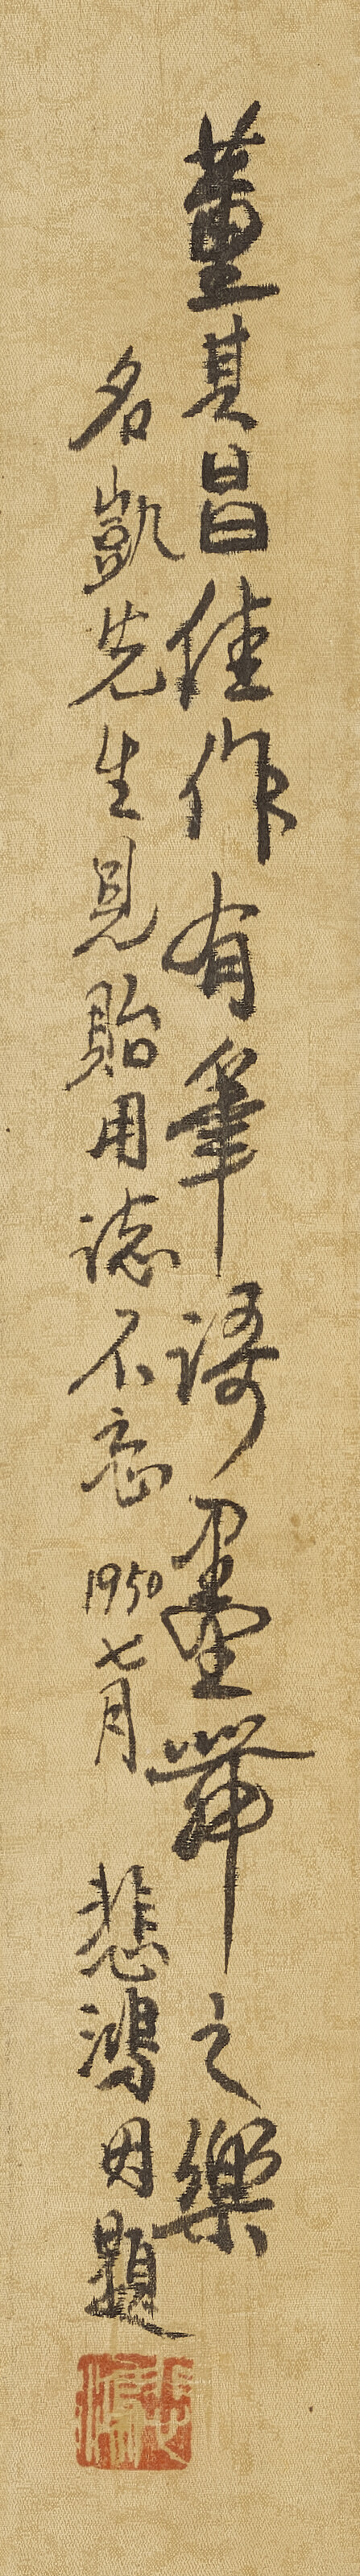 董其昌佳作有筆謌墨舞之樂
名凱先生見貽用誌不忘 1950 七月 悲鴻因題
悲鴻